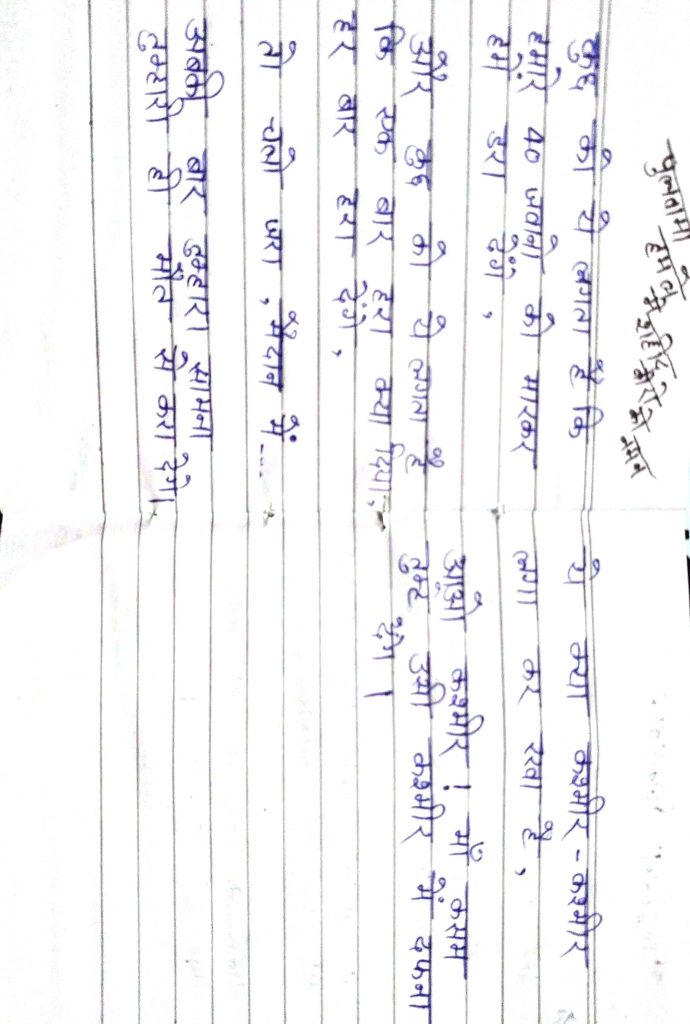 पुलवामा हमले मे शहिद हुये को नमन
कुछ को ये लगता है कि
हमारे 40 जवानो को मारकर
हमे डरा देंगे,
और कुछ को ये लगता है
कि एक बार हरा क्या दिया,
हर बार हरा देंगे,
तो चलो जरा, मैदान में
अबकी बार तुम्हारा सामना
तुम्हारी ही मौत से करा देंगे।
ये क्या कश्मीर - कश्मीर
लगा कर रखा है,
आओ कश्मीर ! माँ कसम
तुम्हे उसी कश्मीर में दफना
देंगे ।